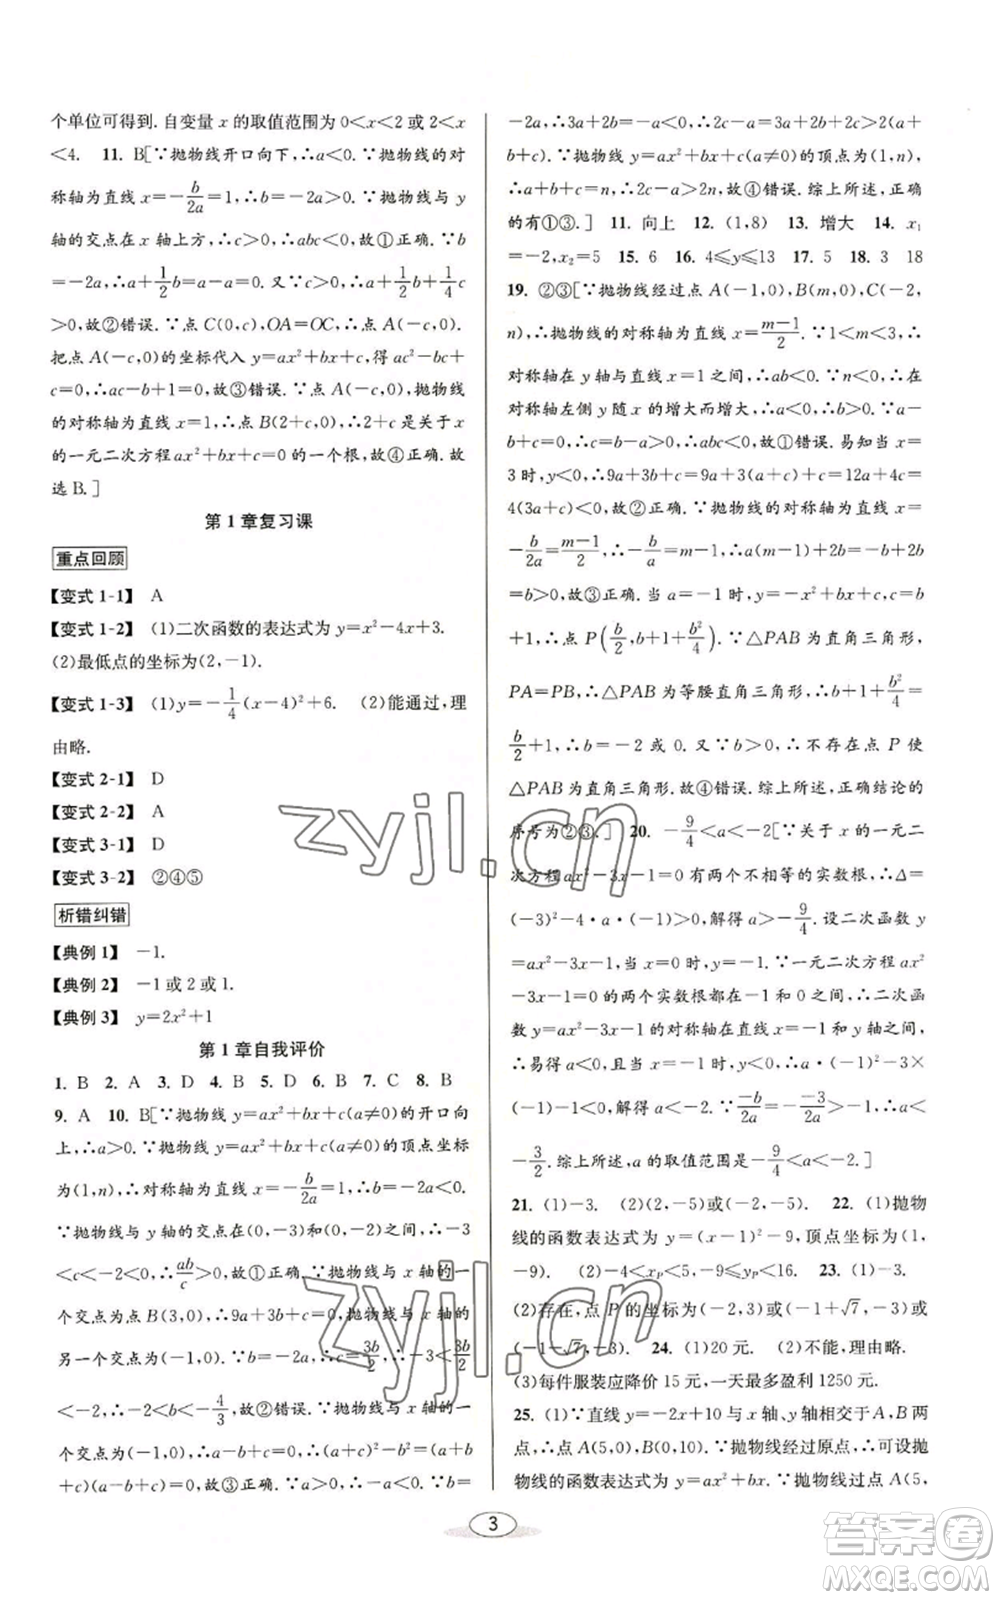 个单位可得到. 自变量 x 的取值范围为 0<x<2 或 2<x
<4.　11. B[∵抛物线开口向下,∴a<0. ∵抛物线的对
称轴为直线 x=-b/2a=1,∴b=-2a>0. ∵抛物线与 y
轴的交点在 x 轴上方,∴c>0,∴abc<0,故①正确. ∵b
=-2a,∴a+1/2b=a-a=0. ∵c>0,∴a+1/2b+1/4c
>0,故②错误. ∵点 C(0,c),OA=OC,∴点 A(-c,0).
把点 A(-c,0)的坐标代入 y=ax²+bx+c,得 ac²-bc+
c=0,∴ac-b+1=0,故③错误. ∵点 A(-c,0),抛物线
的对称轴为直线 x=1,∴点 B(2+c,0),∴2+c 是关于 x
的一元二次方程 ax²+bx+c=0 的一个根,故④正确. 故
选 B.]
第 1 章复习课
重点回顾
【变式 1-1】 A
【变式 1-2】 (1)二次函数的表达式为 y=x²-4x+3.
(2)最低点的坐标为(2,-1).
【变式 1-3】 (1)y=-1/4(x-4)²+6.　(2)能通过,理
由略.
【变式 2-1】 D
【变式 2-2】 A
【变式 3-1】 D
【变式 3-2】 ②④⑤
析错纠错
【典例 1】 -1.
【典例 2】 -1或2或1.
【典例 3】 y=2x²+1
第 1 章自我评价
1. B　2. A　3. D　4. B　5. D　6. B　7. C　8. B
9. A　10. B[∵抛物线 y=ax²+bx+c(a≠0)的开口向
上,∴a>0. ∵抛物线 y=ax²+bx+c(a≠0)的顶点坐标
为(1,n),∴对称轴为直线 x=-b/2a=1,∴b=-2a<0.
∵抛物线与 y 轴的交点在(0,-3)和(0,-2)之间,∴-3
<c<-2<0,∴ab/c>0,故①正确. ∵抛物线与 x 轴的一
个交点为 B(3,0),∴9a+3b+c=0. ∵抛物线与 x 轴的
另一个交点为(-1,0). ∵b=-2a,∴c=3b/2,∴-3<3b/2
<-2,∴-2<b<-4/3,故②错误. ∵抛物线与 x 轴的一
个交点为(-1,0),∴a-b+c=0,∴(a+c)²-b²=(a+b
+c)(a-b+c)=0,故③正确. ∵a>0,∴-a<0. ∵b=
-2a,∴3a+2b=-a<0,∴2c-a>2(a+b+c). ∵抛物线 y=ax²+bx+c(a≠0)的顶点为(1,n),∴a+b+c=n,∴2c-a>2n,故④错误. 综上所述,正确
的有①③.]　11. 向上　12. (1,8)　13. 增大　14. x₁
=-2,x₂=5　15. 6　16. 4≤y≤13　17. 5　18. 3　18
19. ②③[∵抛物线经过点 A(-1,0),B(m,0),C(-2,
n),∴抛物线的对称轴为直线 x=(m-1)/2. ∵1<m<3,∴
对称轴在 y 轴与直线 x=1 之间,∴ab<0. ∵n<0,∴在
对称轴左侧 y 随 x 的增大而增大,∴a<0,∴b>0. ∵a-
b+c=0,∴c=b-a>0,∴abc<0,故①错误. 易知当 x=
3 时,y<0,∴9a+3b+c=9a+3(a+c)+c=12a+4c=
4(3a+c)<0,∴3a+c<0,故②正确. ∵抛物线的对称轴为直线 x=
-b/2a=(m-1)/2,∴-b/a=m-1,∴m=1-b/a
b>0,故③正确. 当 a=-1 时,y=-x²+bx+c,c=b
+1,∴点 P(b/2,b+1+b²/4). ∵△PAB 为直角三角形,
PA=PB,∴△PAB 为等腰直角三角形,∴b+1+b²/4=
b/2+1,∴b=-2 或 0. 又∵b>0,∴不存在点 P 使
△PAB 为直角三角形,故④错误. 综上所述,正确结论的
序号为②③.]　20. -9/4<a<-2[∵关于 x 的一元二
次方程 ax²-3x-1=0 有两个不相等的实数根,∴Δ=
(-3)²-4·a·(-1)>0,解得 a>-9/4. 设二次函数 y
=ax²-3x-1,当 x=0 时,y=-1<0. ∵一元二次方程 ax²
-3x-1=0 的两个实数根都在-1和0之间,∴二次函数 y=ax²-3x-1的对称轴在直线 x=-1 和 y 轴之间,
∴易得 a<0,且当 x=-1 时,y<0,∴a×(-1)²-3×
(-1)-1<0,解得 a<-2. ∵-b/2a=-(-3)/2a>-1,∴a<
-3/2. 综上所述,a 的取值范围是-9/4<a<-2.]
21. (1)-3.　(2)(2,-5)或(-2,-5).　22. (1)抛物
线的函数表达式为 y=(x-1)²-9,顶点坐标为(1,
-9).　(2)-4<xₚ<5,-9≤yₚ<16.　23. (1)-3.
(2)存在,点 P 的坐标为(-2,3)或(-1+√7,-3)或
(-1-√7,-3).　24. (1)20 元.　(2)不能,理由略.
(3)每件服装应降价 15 元,一天最多盈利 1250 元.
25. (1)∵直线 y=-2x+10 与 x 轴、y 轴相交于 A,B 两
点,∴点 A(5,0),B(0,10). ∵抛物线经过原点,∴可设抛
物线的函数表达式为 y=ax²+bx. ∵抛物线过点 A(5,
3
zyjl.cn
zyjl.cn
答案圈
MXQE.COM